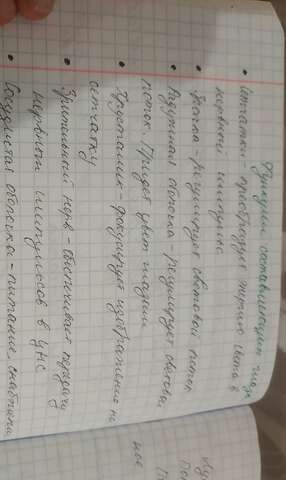 Функции составляющих глаза
• Сетчатка - преобразует энергию света в
нервный импульс
• Зрачок - регулирует световой поток
• Радужная оболочка - регулирует световой
поток. Придает цвет глазам
• Хрусталик - фокусирует изображение на
сетчатку
• Зрительный нерв - обеспечивает передачу
нервных импульсов в ЦНС
• Сосудистая оболочка - питание, снабжение
ное